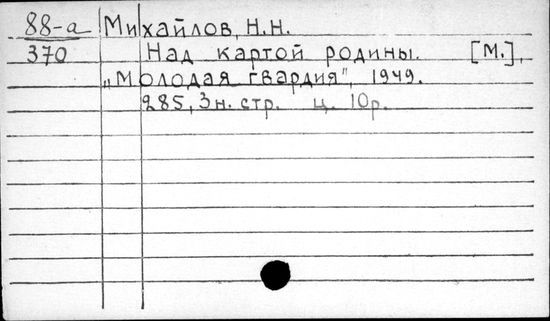 88-а Михайлов, Н.Н.
370 Над картой родины. [М.],
„Молодая гвардия", 1949.
285, 3н. стр. ц. 10р.